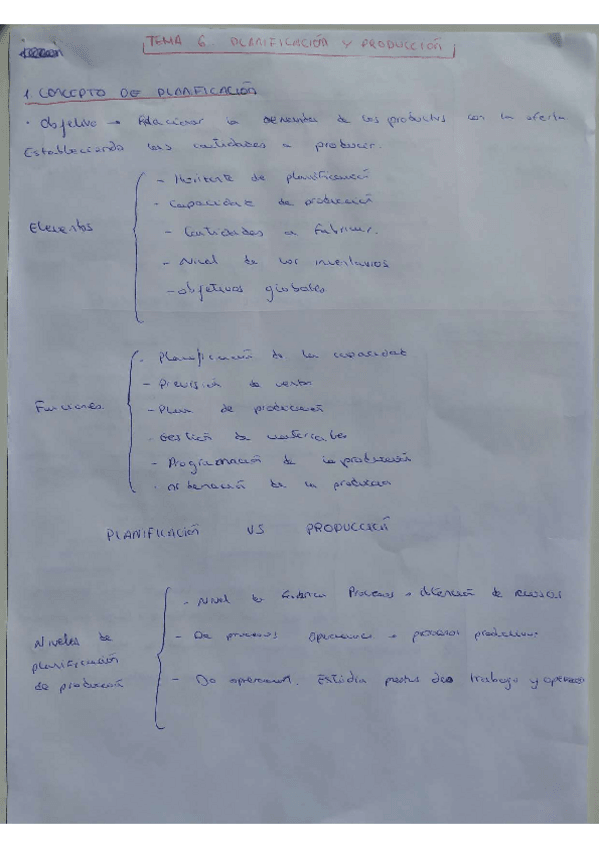 TEMA 6. PLANIFICACIÓN Y PRODUCCIÓN
1. CONCEPTO DE PLANIFICACIÓN
· Objetivo → Relacionar la demanda de los productos con la oferta
Estableciendo las cantidades a producir.
Elementos
- Horizonte de planificación
- Capacidad de producción
- Cantidades a fabricar.
- Nivel de los inventarios
- Objetivos globales
Funciones
- Planificación de la capacidad
- Previsión de ventas
- Plan de producción
- Gestión de materiales
- Programación de la producción
- Ordenación de la producción
PLANIFICACIÓN VS PRODUCCIÓN
Niveles de
planificación
de producción
- Nivel de Procesos → Obtención de recursos
- De procesos → procesos productivos
- De operación. Estudia puestos de trabajo y